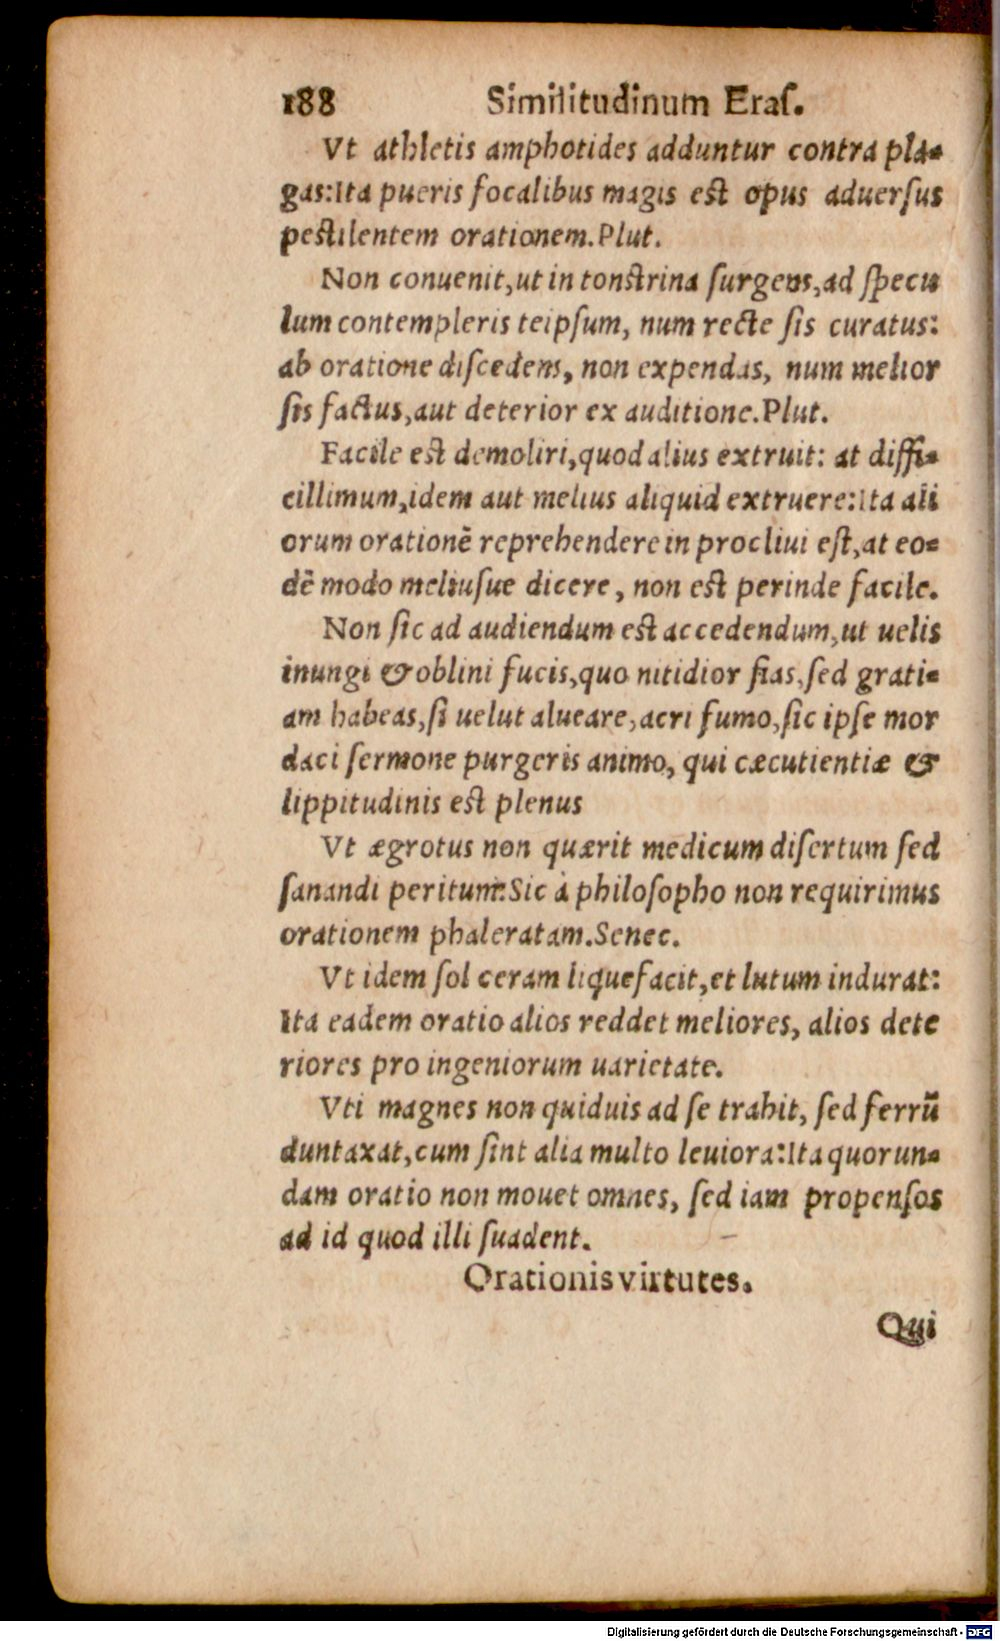 188 Similitudinum Eraſ.
Vt athletis amphotides adduntur contra pla⸗
gas:Ita pueris focalibus magis est opus aduerſus
pestilentem orationem.Plut.
Non conuenit,ut in tonstrina ſurgens,ad ſpecu
lum contempleris teipſum, num recte ſis curatus:
ab oratione diſcedens, non expendas, num melior
ſis factus,aut deterior ex auditione.Plut.
Facile est demoliri,quod alius extruit: at diffi⸗
cillimum,idem aut melius aliquid extruere:Ita ali
orum orationē reprehendere in procliui eſt,at eo⸗
dē modo meliuſue dicere, non est perinde facile.
Non ſic ad audiendum est accedendum,ut uelis
inungi & oblini fucis,quo nitidior fias,ſed grati⸗
am habeas,ſi uelut alueare,acri fumo,ſic ipſe mor
daci ſermone purgeris animo, qui cæcutientiæ &
lippitudinis est plenus
Vt ægrotus non quærit medicum diſertum ſed
ſanandi peritum:Sic à philoſopho non requirimus
orationem phaleratam.Senec.
Vt idem ſol ceram liquefacit,et lutum indurat:
Ita eadem oratio alios reddet meliores, alios dete
riores pro ingeniorum uarietate.
Vti magnes non quiduis ad ſe trahit, ſed ferrū
duntaxat,cum ſint alia multo leuiora:Ita quorun⸗
dam oratio non mouet omnes, ſed iam propenſos
ad id quod illi ſuadent.
Orationis virtutes.
Qui
Digitalisierung gefördert durch die Deutsche Forschungsgemeinschaft - DFG